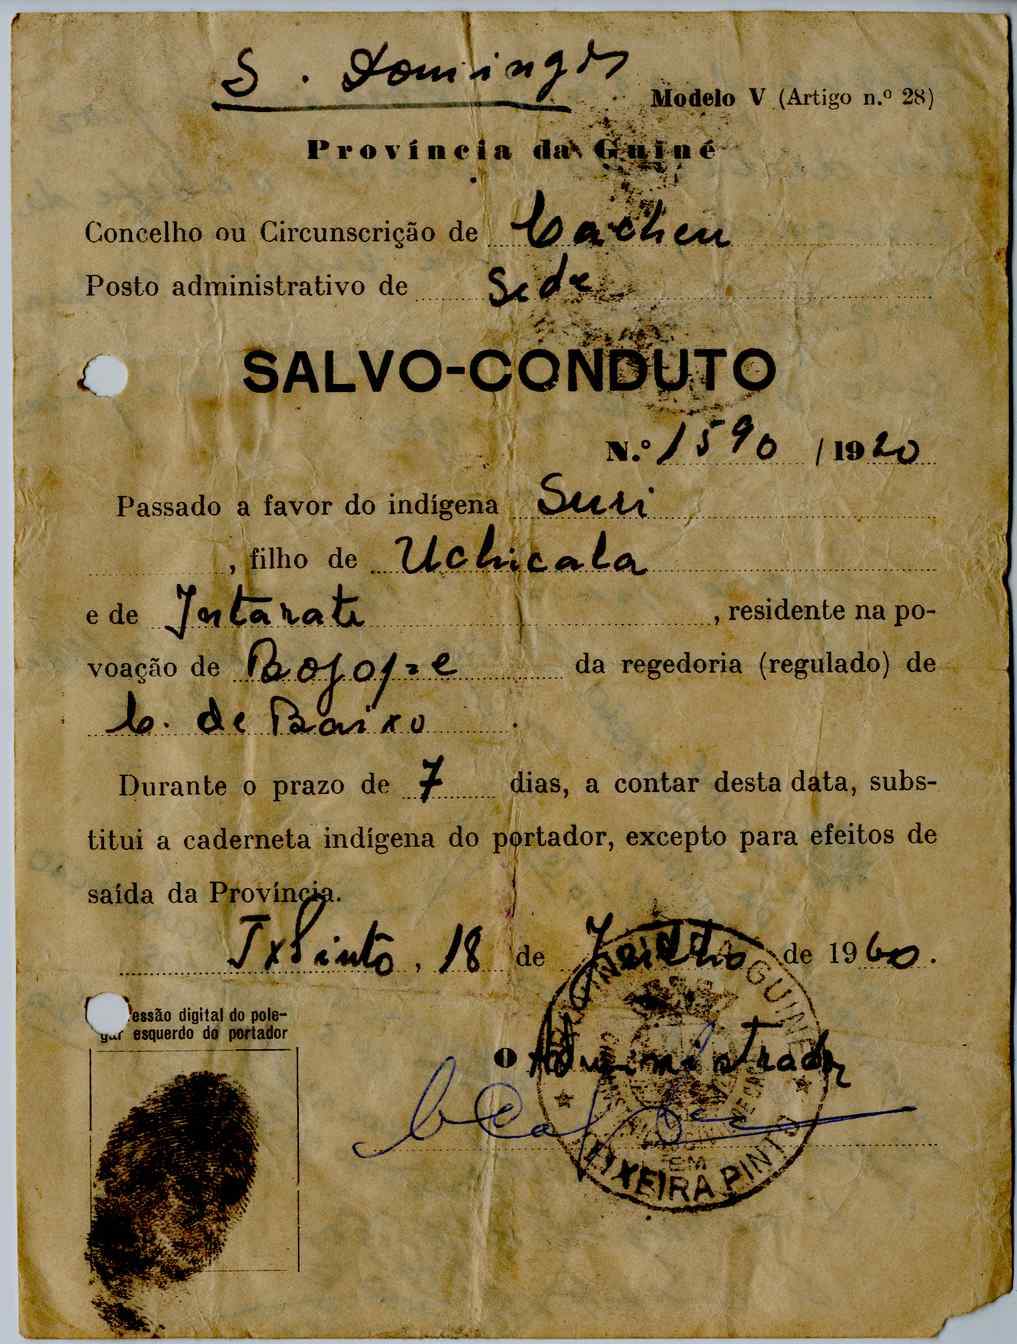 S. Domingos
Modelo V (Artigo n.º 28)
Província da Guiné
Concelho ou Circunscrição de Cacheu
Posto administrativo de Sede
SALVO-CONDUTO
N.º 1590 / 1920
Passado a favor do indígena Suri
, filho de Uchicala
e de Intarate , residente na po-
voação de da regedoria (regulado) de
C. de Baixo .
Durante o prazo de 7 dias, a contar desta data, subs-
titui a caderneta indígena do portador, excepto para efeitos de
saída da Província.
TxPinto , 18 de de 1960.
essão digital do pole-
gar esquerdo do portador
O Administrador
GUINÉ
EM
TEIXEIRA PINTO